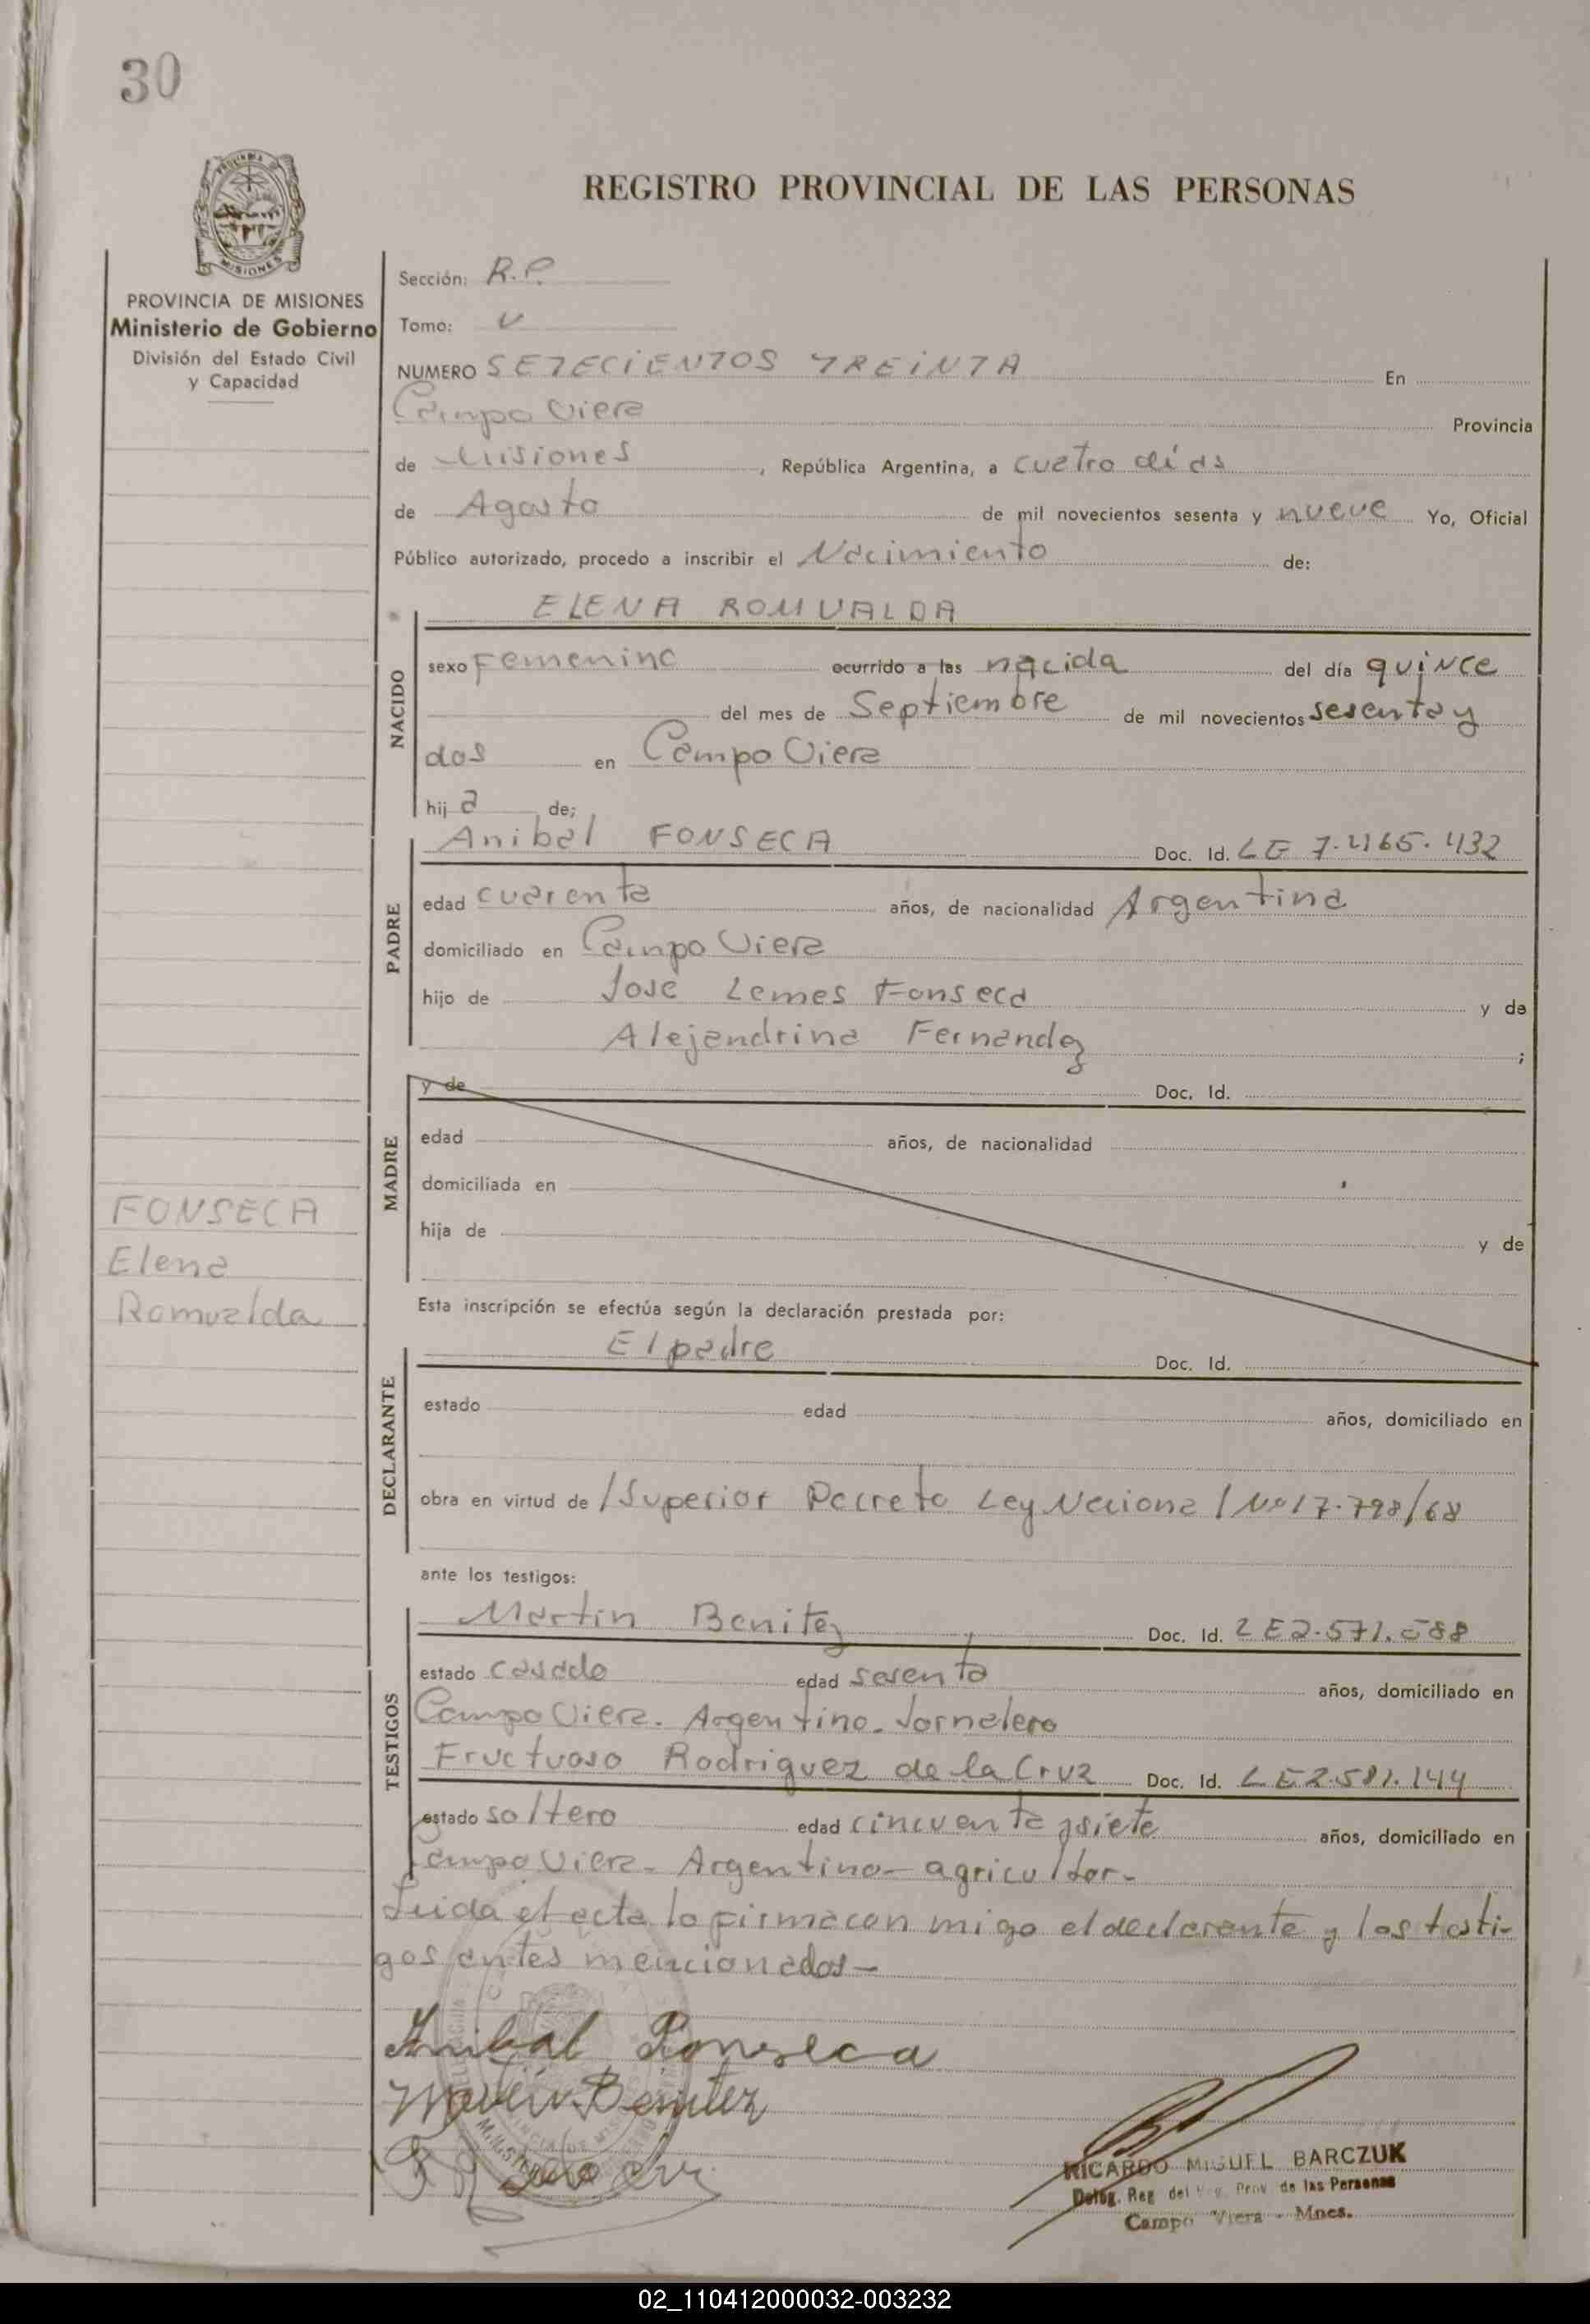 30
PROVINCIA DE MISIONES
Ministerio de Gobierno
División del Estado Civil
y Capacidad
REGISTRO PROVINCIAL DE LAS PERSONAS
Sección: R.P.
Tomo: V
NUMERO SETECIENTOS TREINTA En
Campo Viera Provincia
de Misiones, República Argentina, a cuatro días
de Agosto de mil novecientos sesenta y nueve Yo, Oficial
Público autorizado, procedo a inscribir el Nacimiento de:
ELENA ROMUALDA
NACIDO
sexo Femenino ocurrido a las nacida del día quince
del mes de Septiembre de mil novecientos sesenta y
dos en Campo Viera
hij a de;
Anibal FONSECA Doc. Id. LE 7.465.432
PADRE
edad cuarenta años, de nacionalidad Argentina
domiciliado en Campo Viera
hijo de Jose Lemes Fonseca y de
Alejandrina Fernandez ;
MADRE
y de Doc. Id.
edad años, de nacionalidad
domiciliada en
hija de y de
FONSECA
Elena
Romualda
Esta inscripción se efectúa según la declaración prestada por:
El padre Doc. Id.
DECLARANTE
estado edad años, domiciliado en
obra en virtud de /Superior Decreto Ley Nacional Nº 17.798/68
ante los testigos:
Martin Benitez Doc. Id. LE 2.571.588
TESTIGOS
estado casado edad sesenta años, domiciliado en
Campo Viera. Argentino. Jornalero
Fructuoso Rodriguez de la Cruz Doc. Id. LE 2.581.144
estado soltero edad cincuenta y siete años, domiciliado en
Campo Viera - Argentino - agricultor -
Leida el acta la firma con migo el declarante y los testi-
gos antes mencionados -
Anibal Fonseca
Martin Benitez
RICARDO MIGUEL BARCZUK
Deleg. Reg. del Prov. de las Personas
Campo Viera - Mnes.
02_110412000032-003232